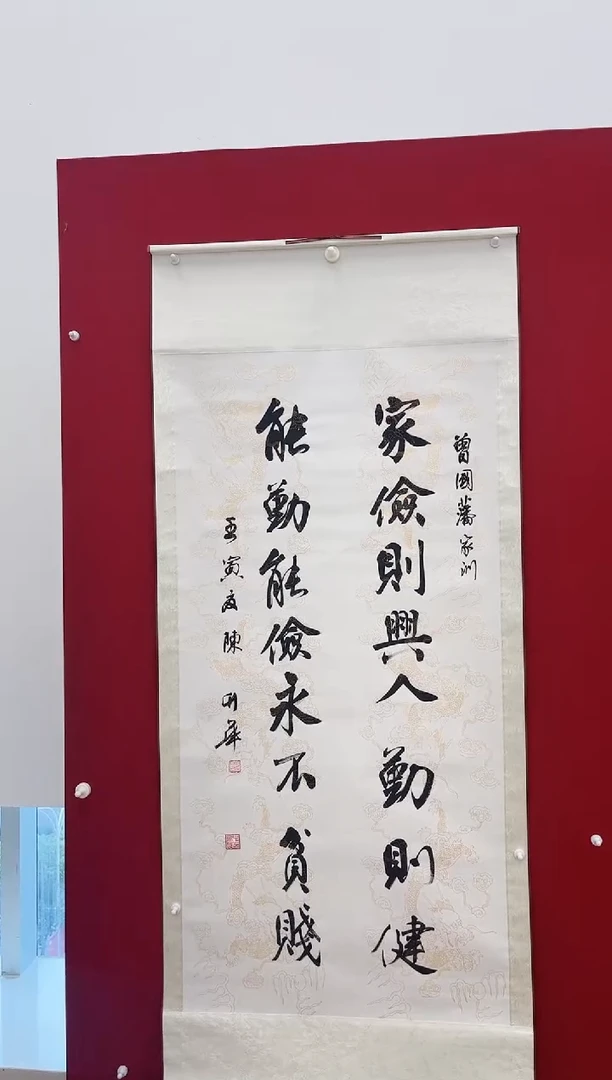 曾國藩家訓
家儉則興人勤則健
能勤能儉永不貧賤
壬寅夏陳明華